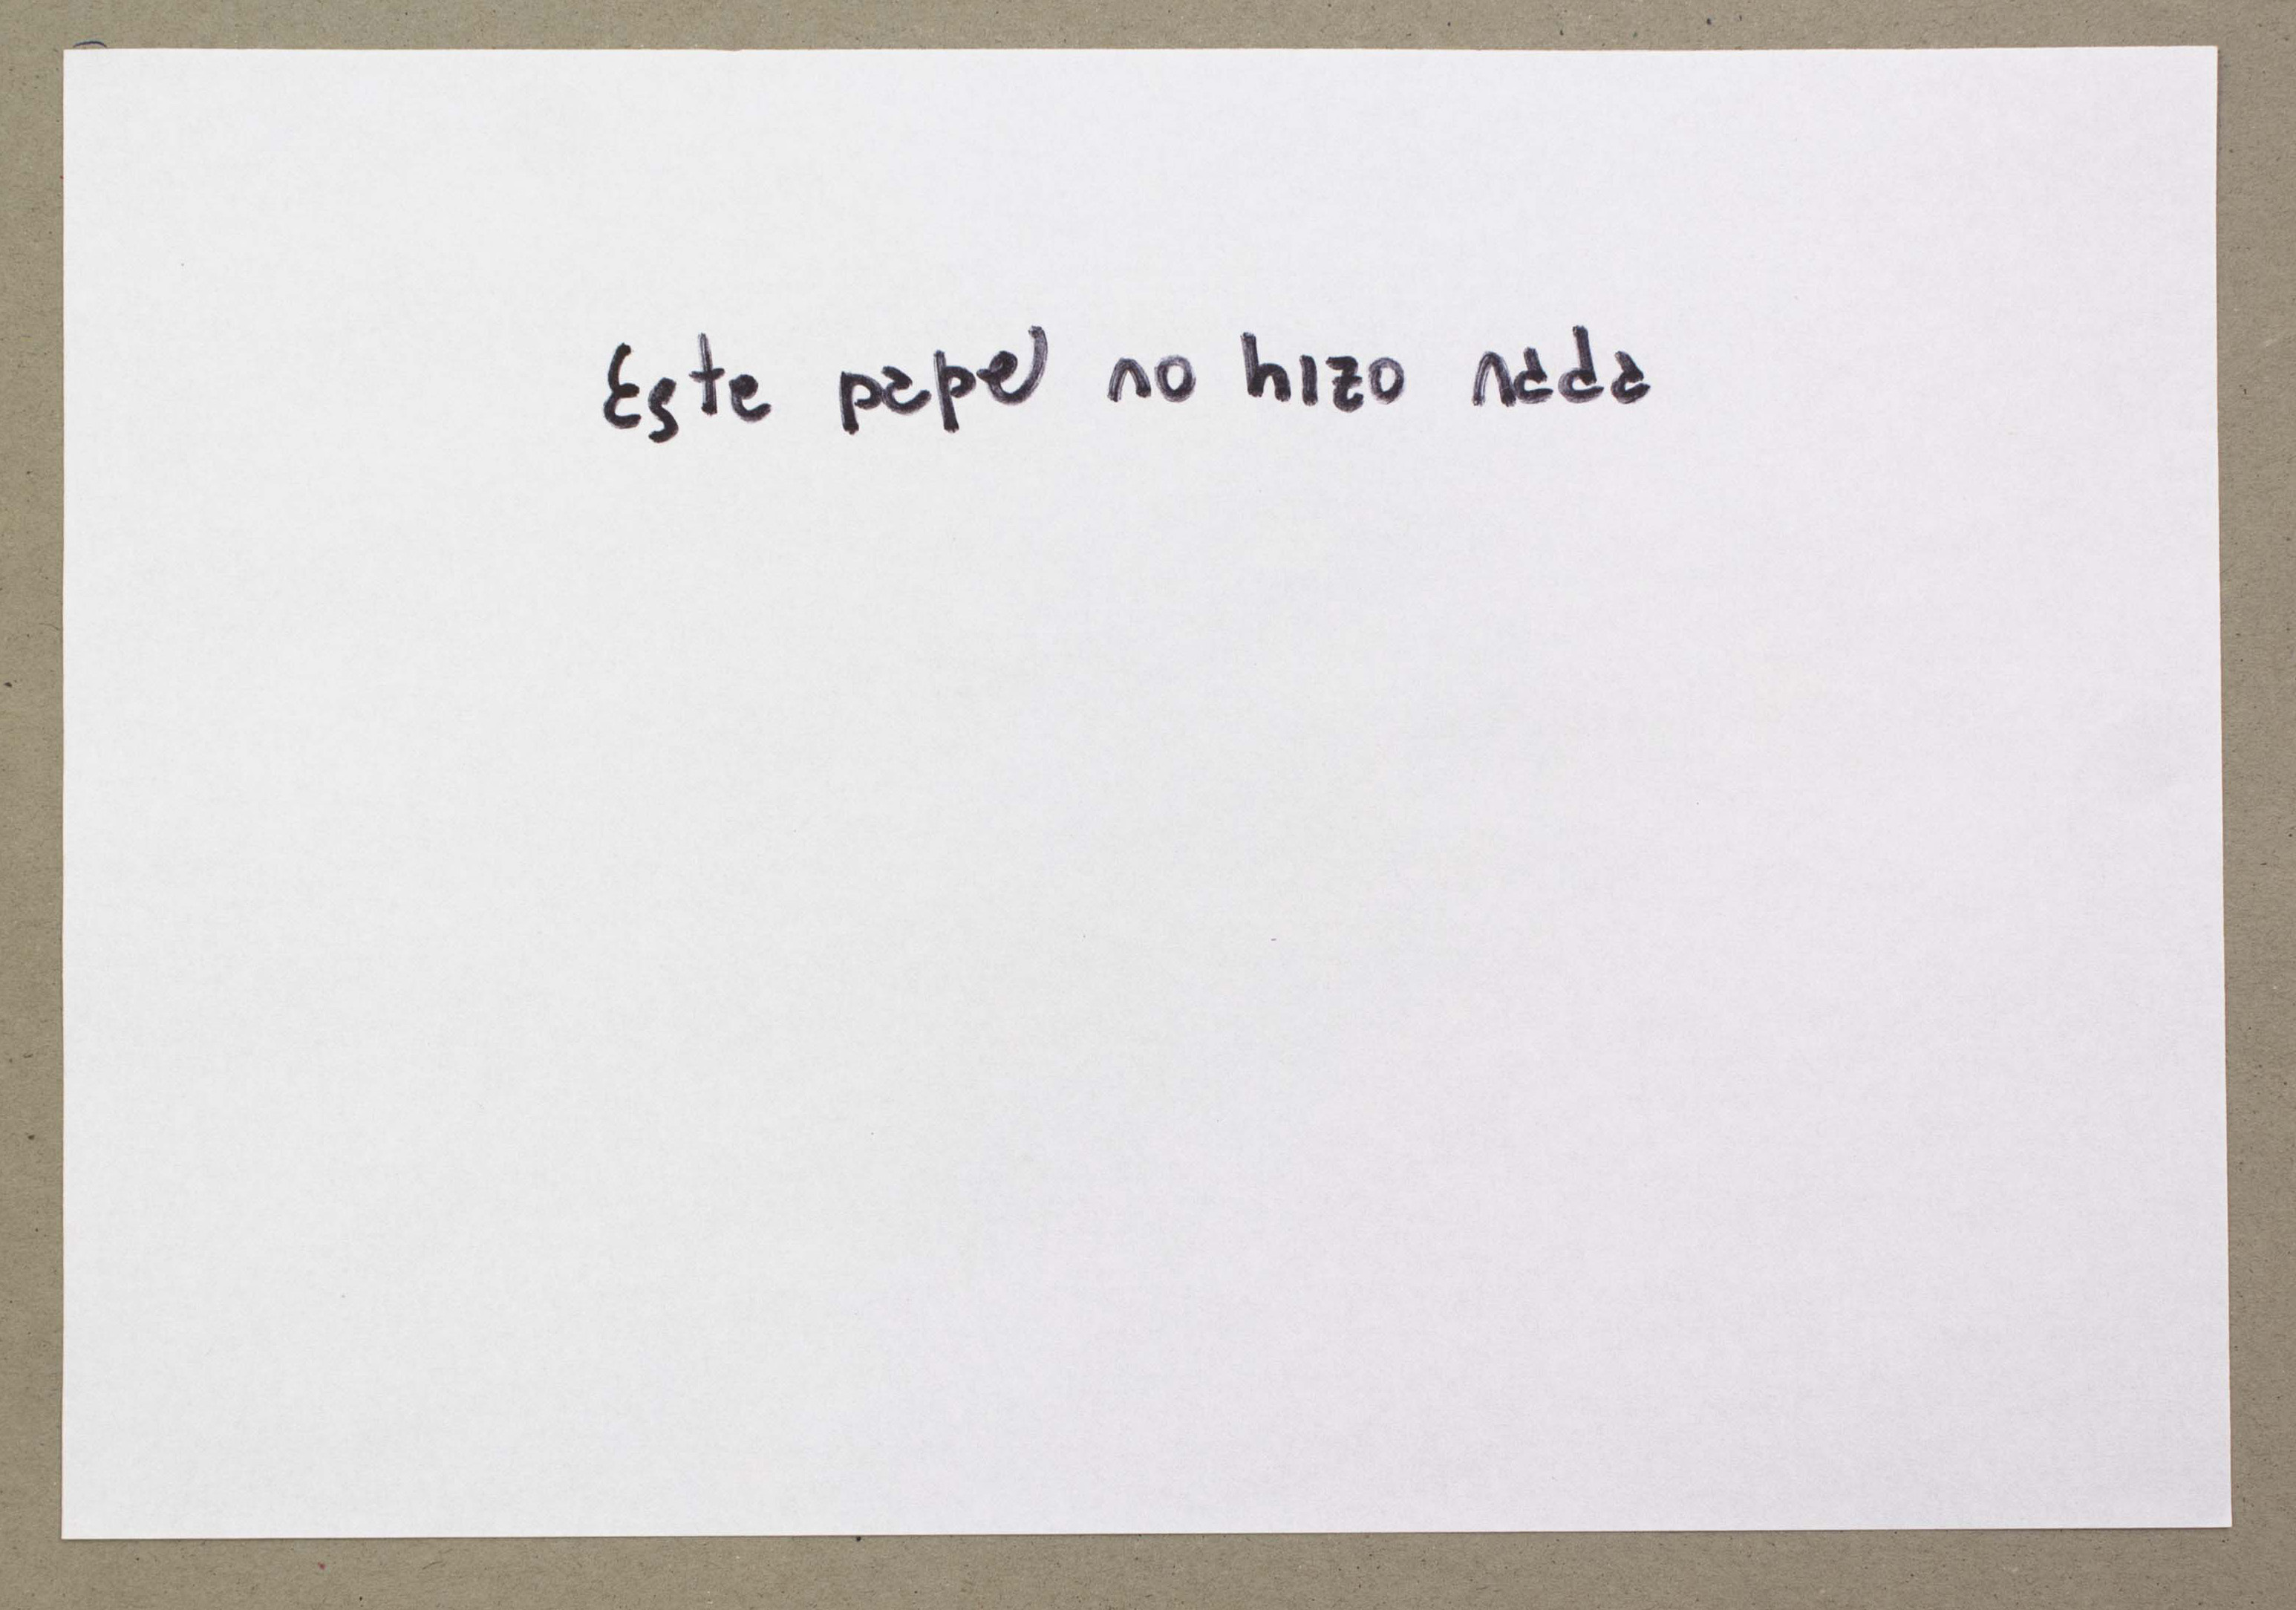 Este papel no hizo nada